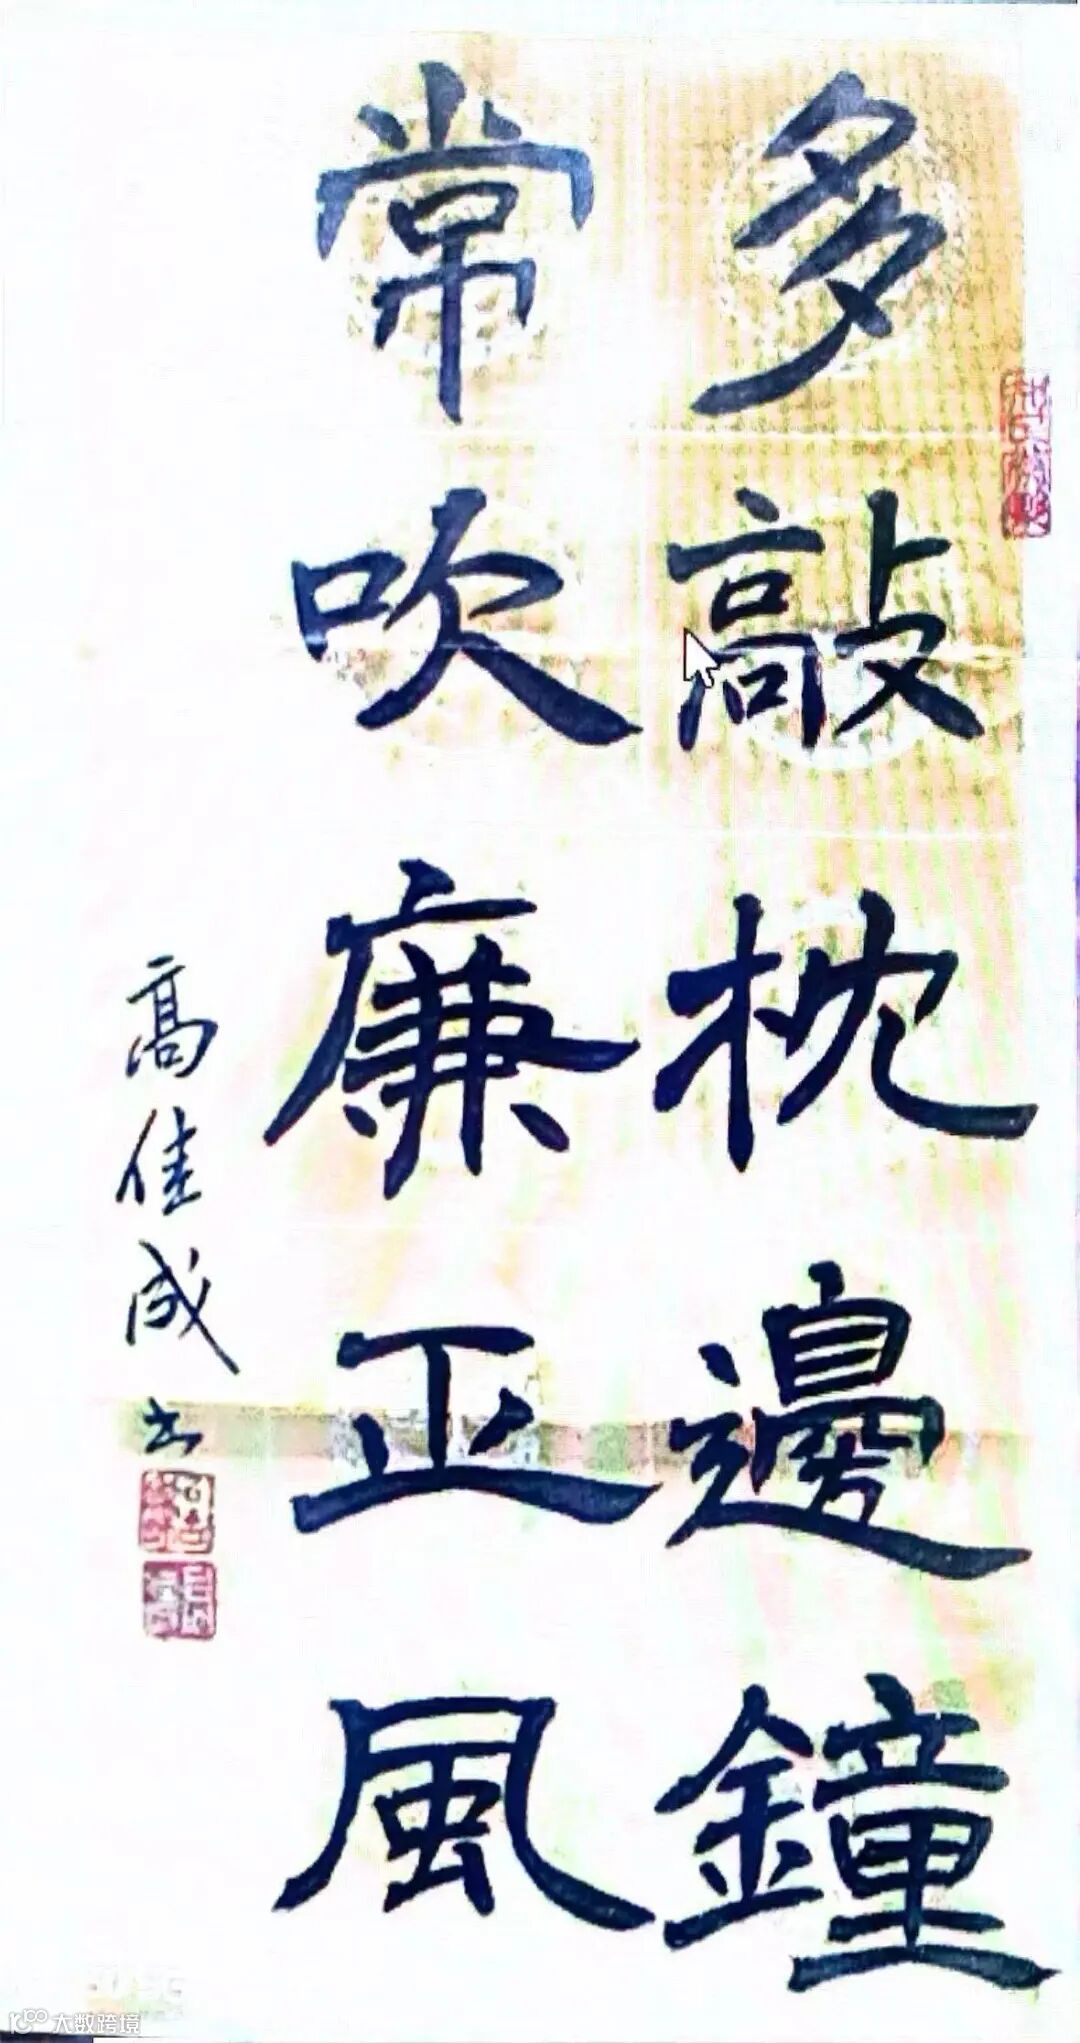 多敲枕邊鐘
常吹廉正風
高佳成书
大数跨境